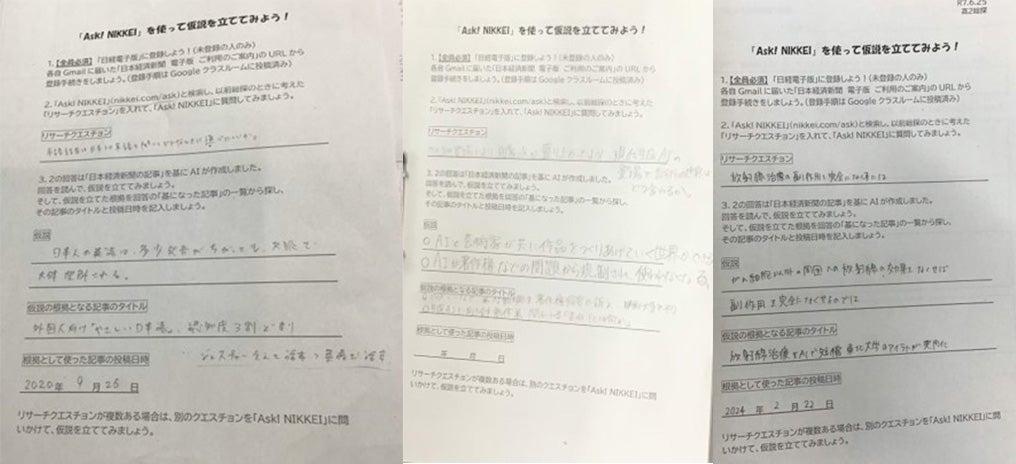 「Ask! NIKKEI」を使って仮説を立ててみよう！
1.【全員必須】「日経電子版」に登録しよう！(未登録の人のみ)
各自 Gmail に届いた「日本経済新聞 電子版 ご利用のご案内」の URL から
登録手続きをしましょう。(登録手順は Google クラスルームに投稿済み)
2.「Ask! NIKKEI」(nikkei.com/ask)と検索し、以前総探のときに考えた
「リサーチクエスチョン」を入れて、「Ask! NIKKEI」に質問してみましょう。
リサーチクエスチョン
3. 2の回答は「日本経済新聞の記事」を基に AI が作成しました。
回答を読んで、仮説を立ててみましょう。
そして、仮説を立てた根拠を回答の「基になった記事」の一覧から探し、
その記事のタイトルと投稿日時を記入しましょう。
仮説
日本人の英語は、多少発音がちがっても、大抵で
仮説の根拠となる記事のタイトル
外国人向け「やさしい日本語」、認知度3割どまり
根拠として使った記事の投稿日時
2020年 9月 25日
リサーチクエスチョンが複数ある場合は、別のクエスチョンを「Ask! NIKKEI」に問
いかけて、仮説を立ててみましょう。
「Ask! NIKKEI」を使って仮説を立ててみよう！
1.【全員必須】「日経電子版」に登録しよう！(未登録の人のみ)
各自 Gmail に届いた「日本経済新聞 電子版 ご利用のご案内」の URL から
登録手続きをしましょう。(登録手順は Google クラスルームに投稿済み)
2.「Ask! NIKKEI」(nikkei.com/ask)と検索し、以前総探のときに考えた
「リサーチクエスチョン」を入れて、「Ask! NIKKEI」に質問してみましょう。
リサーチクエスチョン
3. 2の回答は「日本経済新聞の記事」を基に AI が作成しました。
回答を読んで、仮説を立ててみましょう。
そして、仮説を立てた根拠を回答の「基になった記事」の一覧から探し、
その記事のタイトルと投稿日時を記入しましょう。
仮説
○ AIと芸術家が共に作品をつくりあげていく世界ができる
○ AIが著作権などの問題から規制され、使われなくなる。
仮説の根拠となる記事のタイトル
根拠として使った記事の投稿日時
年 月 日
リサーチクエスチョンが複数ある場合は、別のクエスチョンを「Ask! NIKKEI」に問
いかけて、仮説を立ててみましょう。
R7.6.25
高2総探
「Ask! NIKKEI」を使って仮説を立ててみよう！
1.【全員必須】「日経電子版」に登録しよう！(未登録の人のみ)
各自 Gmail に届いた「日本経済新聞 電子版 ご利用のご案内」の URL から
登録手続きをしましょう。(登録手順は Google クラスルームに投稿済み)
2.「Ask! NIKKEI」(nikkei.com/ask)と検索し、以前総探のときに考えた
「リサーチクエスチョン」を入れて、「Ask! NIKKEI」に質問してみましょう。
リサーチクエスチョン
放射線治療の副作用を完全になくすには
3. 2の回答は「日本経済新聞の記事」を基に AI が作成しました。
回答を読んで、仮説を立ててみましょう。
そして、仮説を立てた根拠を回答の「基になった記事」の一覧から探し、
その記事のタイトルと投稿日時を記入しましょう。
仮説
がん細胞以外の周囲への放射線の効果をなくせば
副作用を完全になくせるのでは
仮説の根拠となる記事のタイトル
放射線治療をAIで短縮 東北大学のアイラトが実用化
根拠として使った記事の投稿日時
2024年 2月 22日
リサーチクエスチョンが複数ある場合は、別のクエスチョンを「Ask! NIKKEI」に問
いかけて、仮説を立ててみましょう。